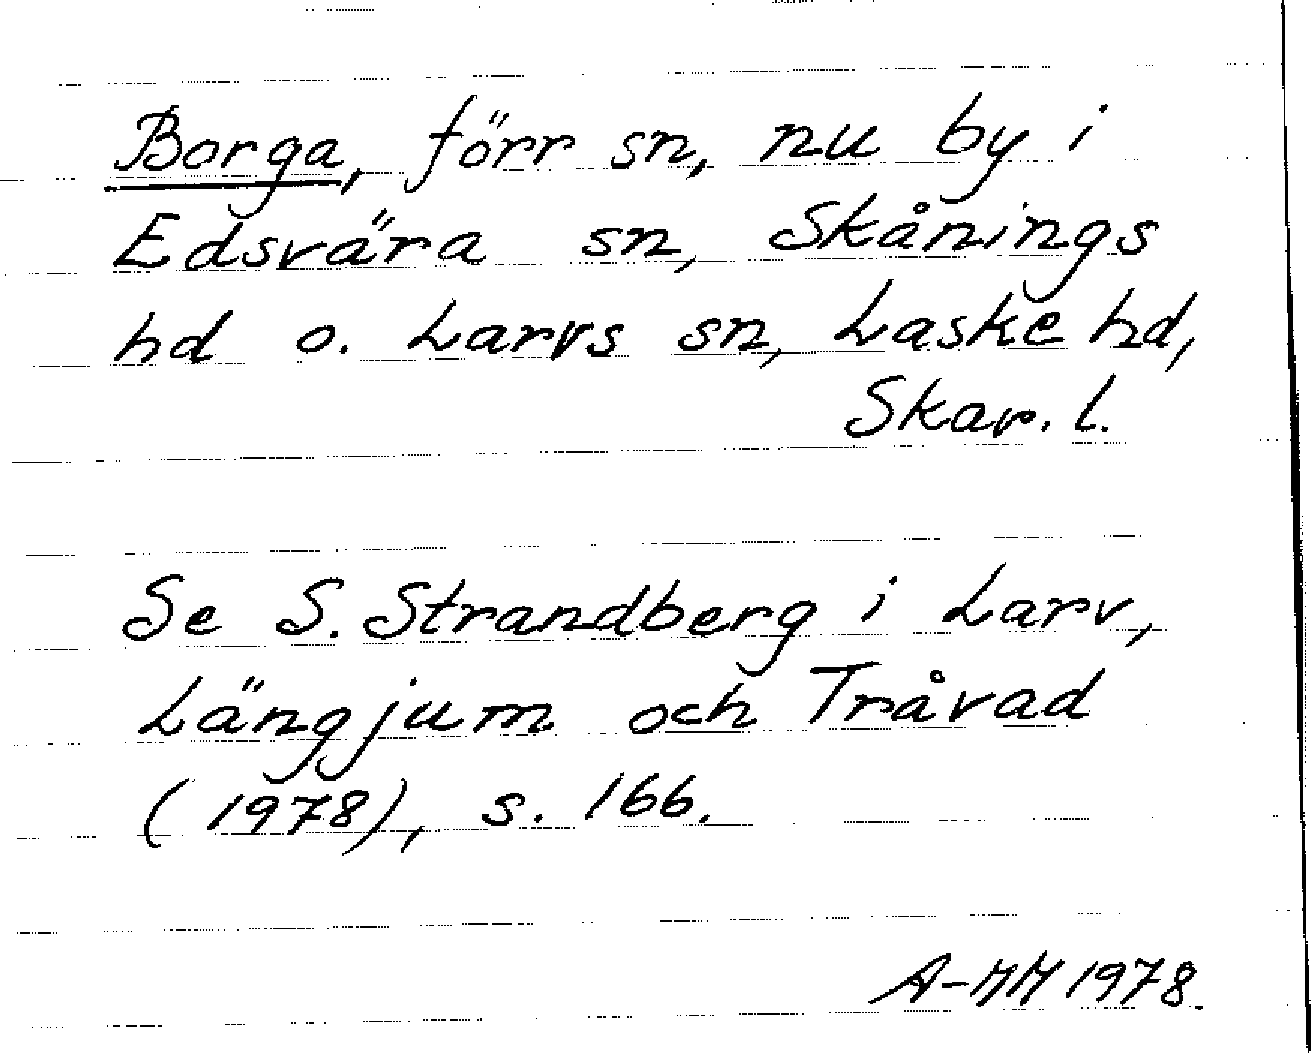 Borga, förr sn, nu by i
Edsvära sn, Skånings
hd o. Larvs sn, Laske hd,
Skar. l.
Se S. Strandberg i Larv,
Längjum och Tråvad
(1978), s. 166.
A-MM 1978.